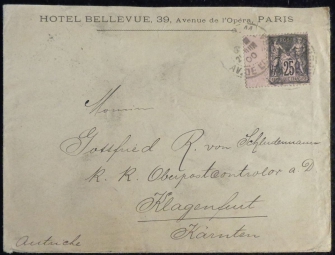 HOTEL BELLEVUE, 39, Avenue de l'Opéra, PARIS
25
Monsieur
Gottfried R. von Schludermann
k. k. Oberpostcontrolor a D
Klagenfurt
Kärnten
Autriche